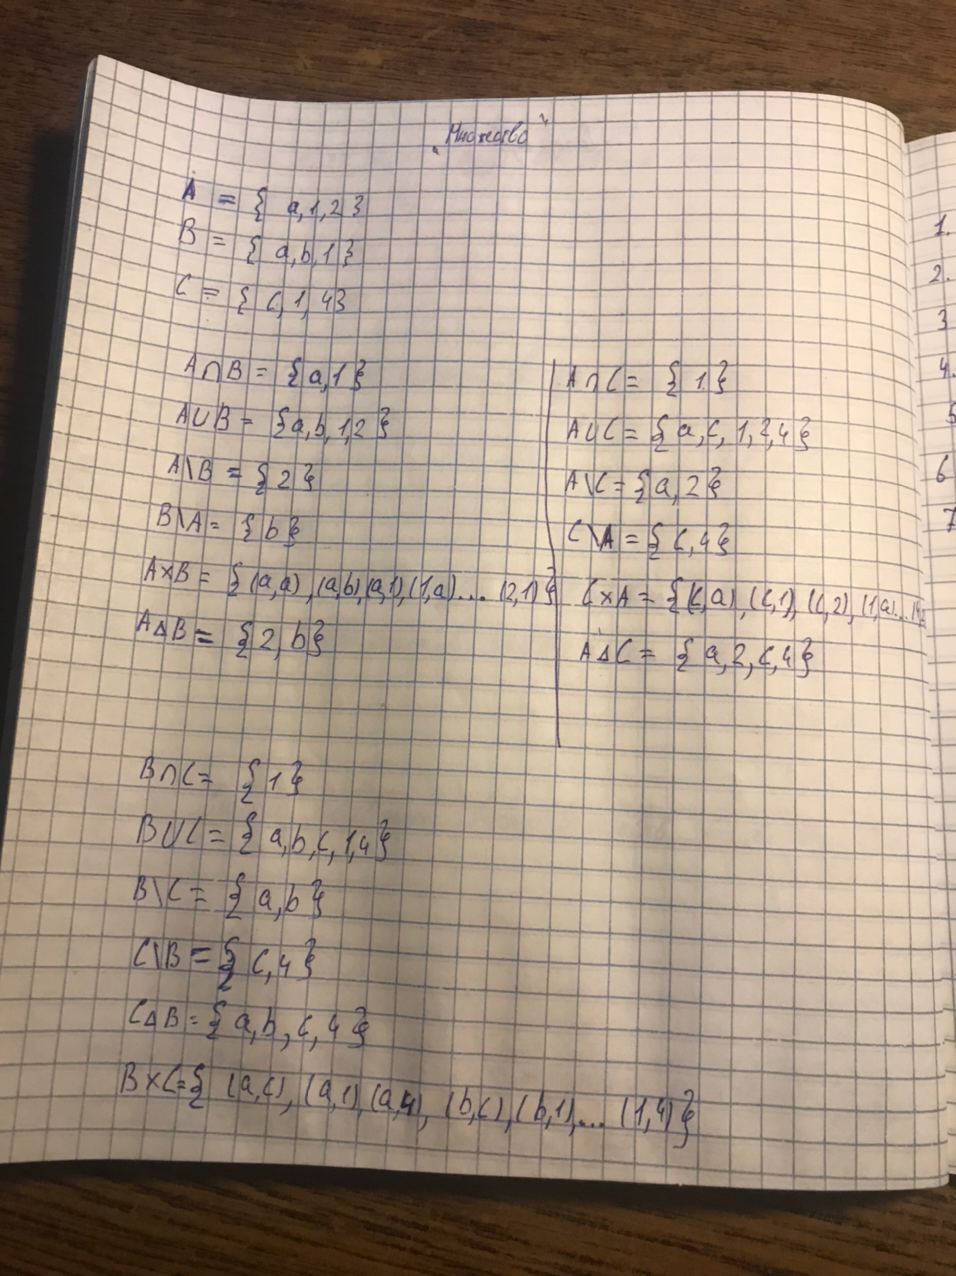 "Множество"
A = { a,1,2}
B = { a,b,1}
C = { c,1,4}
A∩B = {a,1}
A∪B = {a,b,1,2}
A\B = {2}
B\A = {b}
A×B = {(a,a),(a,b),(a,1),(1,a)... (2,1)}
A△B = {2,b}
A∩C = {1}
A∪C = {a,c,1,2,4}
A\C = {a,2}
C\A = {c,4}
C×A = {(c,a),(c,1),(c,2),(1,a)...
A△C = {a,2,c,4}
B∩C = {1}
B∪C = {a,b,c,1,4}
B\C = {a,b}
C\B = {c,4}
C△B = {a,b,c,4}
B×C = { (a,c), (a,1),(a,4), (b,c),(b,1),... (1,4)}
1.
2.
3
4.
5
6
7